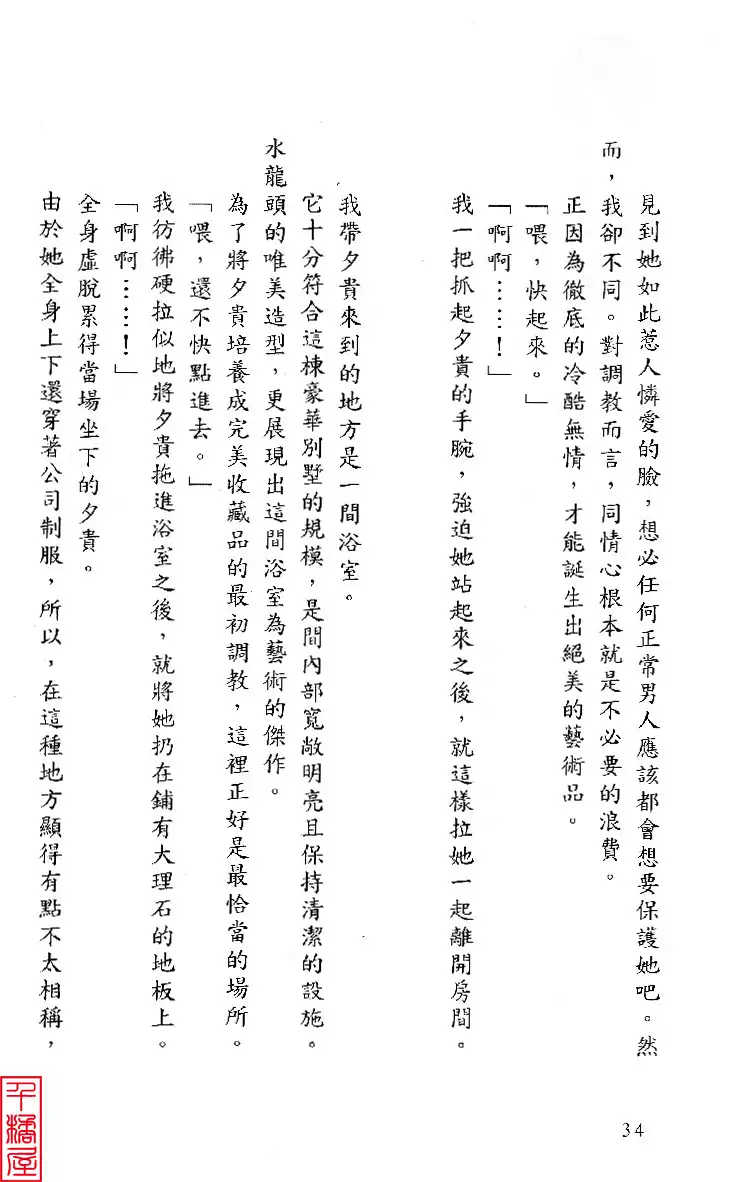 見到她如此惹人憐愛的臉，想必任何正常男人應該都會想要保護她吧。然
而，我卻不同。對調教而言，同情心根本就是不必要的浪費。
正因為徹底的冷酷無情，才能誕生出絕美的藝術品。
「喂，快起來。」
「啊啊……！」
我一把抓起夕貴的手腕，強迫她站起來之後，就這樣拉她一起離開房間。
我帶夕貴來到的地方是一間浴室。
它十分符合這棟豪華別墅的規模，是間內部寬敞明亮且保持清潔的設施。
水龍頭的唯美造型，更展現出這間浴室為藝術的傑作。
為了將夕貴培養成完美收藏品的最初調教，這裡正好是最恰當的場所。
「喂，還不快點進去。」
我彷彿硬拉似地將夕貴拖進浴室之後，就將她扔在鋪有大理石的地板上。
「啊啊……！」
全身虛脫累得當場坐下的夕貴。
由於她全身上下還穿著公司制服，所以，在這種地方顯得有點不太相稱，
34
千橘屋